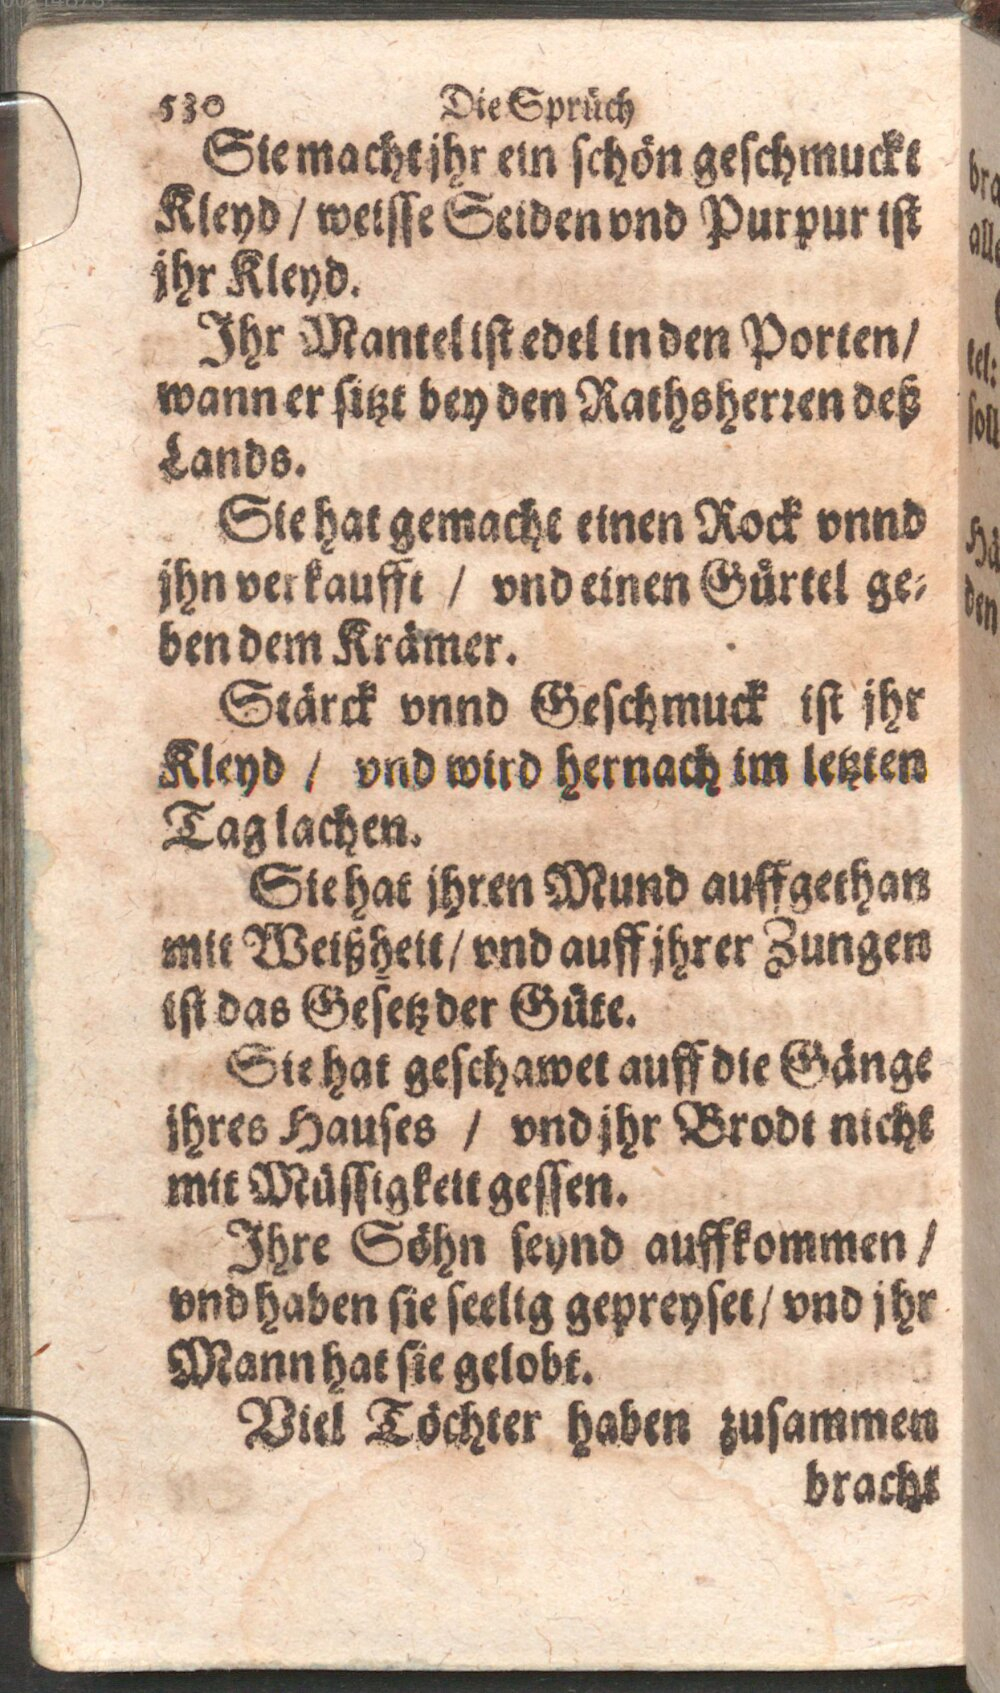 530 Die Sprüch
Sie macht jhr ein schön geschmuckt
Kleyd / weisse Seiden vnd Purpur ist
jhr Kleyd.
Ihr Mantel ist edel in den Porten /
wann er sitzt bey den Rathsherren deß
Lands.
Sie hat gemacht einen Rock vnnd
jhn verkaufft / vnd einen Gürtel ge-
ben dem Krämer.
Stärck vnnd Geschmuck ist jhr
Kleyd / vnd wird hernach im letzten
Tag lachen.
Sie hat jhren Mund auffgethan
mit Weißheit / vnd auff jhrer Zungen
ist das Gesetz der Güte.
Sie hat geschawet auff die Gänge
jhres Hauses / vnd jhr Brodt nicht
mit Müssigkeit gessen.
Ihre Söhn seynd auffkommen /
vnd haben sie seelig gepreyset / vnd jhr
Mann hat sie gelobt.
Viel Töchter haben zusammen
bracht